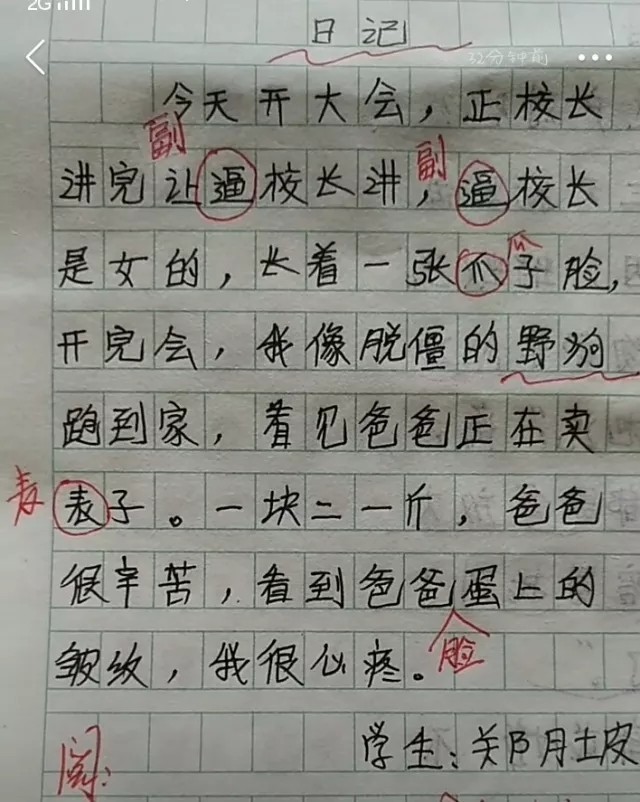 2G
32分钟前
日记
今天开大会，正校长
副 副
讲完让逼校长讲，逼校长
瓜
是女的，长着一张爪子脸，
开完会，我像脱僵的野狗
跑到家，看见爸爸正在卖
麦 表子。一块二一斤，爸爸
很辛苦，看到爸爸蛋上的
皱纹，我很心疼。脸
学生：郑月坡
阅：